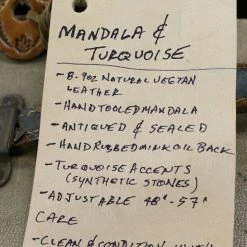 MANDALA &
TURQUOISE
- 8-9OZ NATURAL VEGTAN
LEATHER
- HAND TOOLED MANDALA
- ANTIQUED & SEALED
- HAND RUBBED MINK OIL BACK
- TURQUOISE ACCENTS
(SYNTHETIC STONES)
- ADJUSTABLE 48"-57"
CARE
- CLEAN & CONDITION